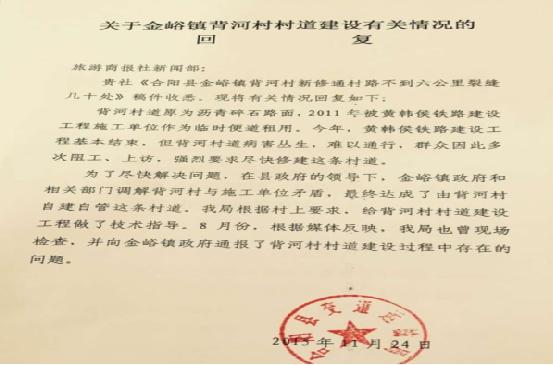 关于金峪镇背河村村道建设有关情况的
回复
旅游商报社新闻部：
贵社《合阳县金峪镇背河村新修通村路不到六公里裂缝
几十处》稿件收悉，现将有关情况回复如下：
背河村道原为沥青碎石路面，2011年被黄韩侯铁路建设
工程施工单位作为临时便道租用。今年，黄韩侯铁路建设工
程基本结束，但背河村道病害丛生，难以通行，群众因此多
次阻工、上访，强烈要求尽快修建这条村道。
为了尽快解决问题，在县政府的领导下，金峪镇政府和
相关部门调解背河村与施工单位矛盾，最终达成了由背河村
自建自管这条村道。我局根据村上要求，给背河村村道建设
工程做了技术指导。8月份，根据媒体反映，我局也曾现场
检查，并向金峪镇政府通报了背河村村道建设过程中存在的
问题。
合阳县交通
2015年11月24日